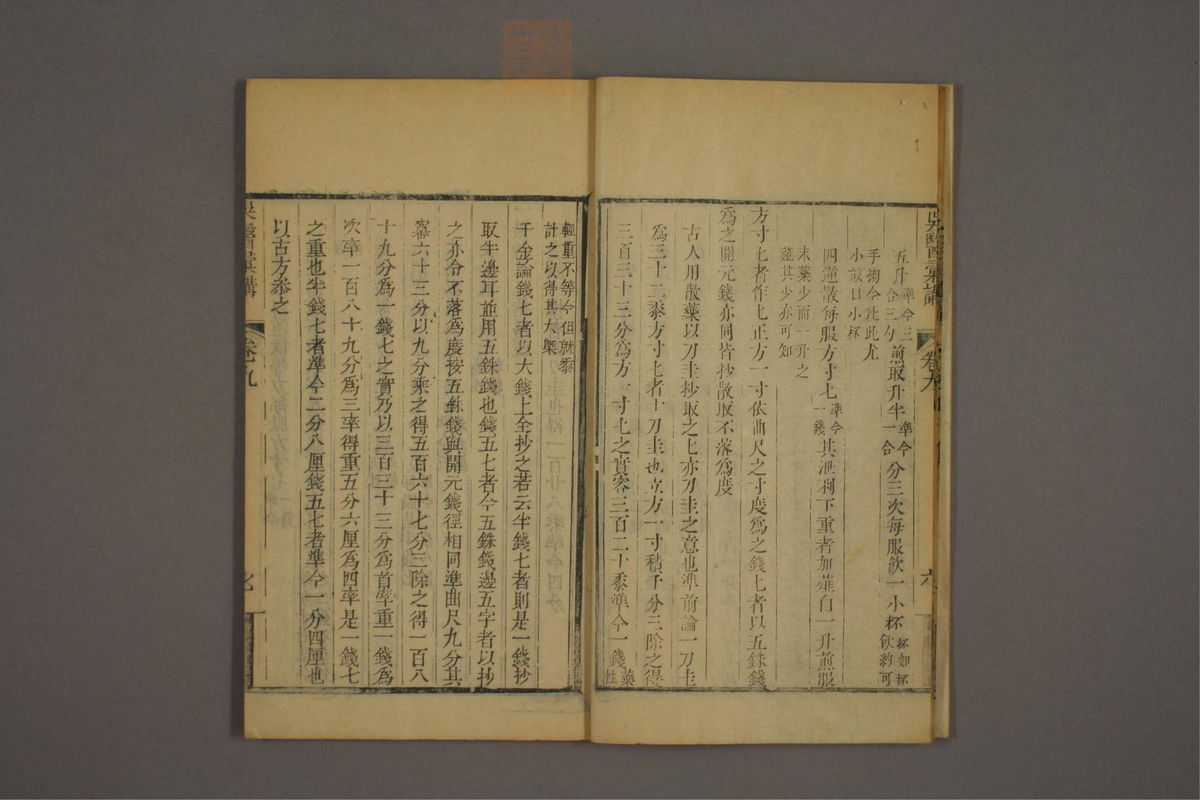 吳醫彙講 卷九 六
五升準今三合三勺煎取升半準今一合分三次每服飲一小杯杯如杯飲約可
手掬今此此尤小故曰小杯
四逆散每服方寸匕準今一錢其泄利下重者加薤白一升煎服
末藥少而一升之薤其少亦可知
方寸匕者作匕正方一寸依曲尺之寸度為之錢匕者以五銖錢
為之開元錢亦同皆抄散取不落為度
古人用散藥以刀圭抄取之匕亦刀圭之意也準前論一刀圭
為三十二黍方寸匕者十刀圭也立方一寸積千分三除之得
三百三十三分為方一寸匕之實容三百二十黍準今一錢藥性
輕重不等今但就黍計之以得其大槩
千金論錢匕者以大錢上全抄之若云半錢匕者則是一錢抄
取半邊耳並用五銖錢也錢五匕者今五銖錢邊五字者以抄
之亦令不落為度按五銖錢與開元錢徑相同準曲尺九分其
冪六十三分以九分乘之得五百六十七分三除之得一百八
十九分為一錢匕之實乃以三百三十三分為首率重一錢為
次率一百八十九分為三率得重五分六厘為四率是一錢匕
之重也半錢匕者準今二分八厘錢五匕者準今一分四厘也
以古方叅之
吳醫彙講 卷九